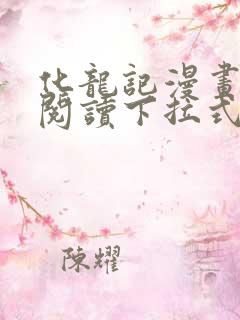 化龍記漫畫
閱讀下拉式
陳耀